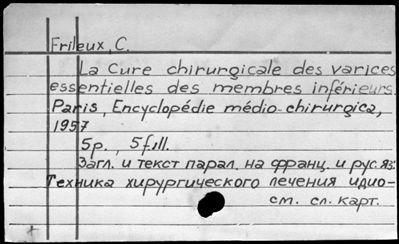 Frileux, C.
La Cure chirurgicale des varices
essentielles des membres inférieurs.
Paris, Encyclopédie médio-chirurgica,
1957
5p., 5fill.
Загл. и текст парал. на франц. и рус.яз.
Техника хирургического лечения идио-
см. сл. карт.